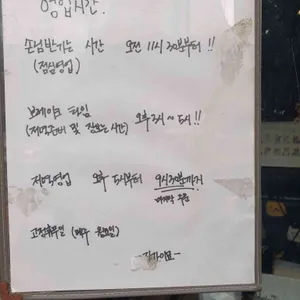 영업시간.
손님반기는 시간 오전 11시 30분부터 !!
(점심영업)
브레이크 타임 오후 3시~5시!!
(저녁준비 및 쉬는시간)
저녁영업 오후 5시부터 9시30분까지
마지막 주문
고정휴무일 (매주 월요일)